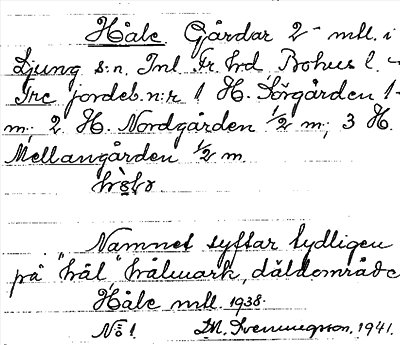 Håle. Gårdar 2 - mtl. i
Ljung s:n. Inl. Fr. hrd, Bohus l. -
Tre jordeb.n:r 1 H. Sörgården 1-
m; 2 H. Nordgården 1/2 m; 3 H.
Mellangården 1/2 m.
Namnet syftar tydligen
på "hål" hålmark, däldområde
Håle mtl. 1938.
No 1. M. Svenningsson, 1941.